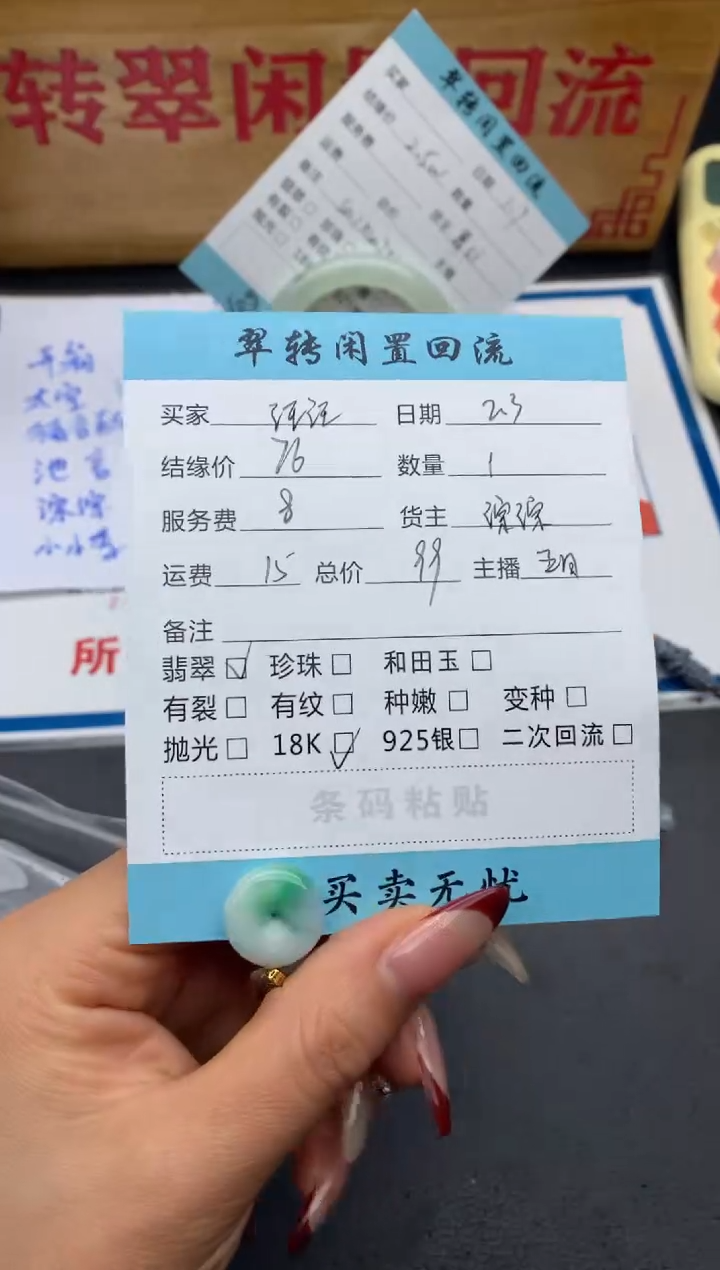 转翠闲置回流
翠转闲置回流
买家
日期 2.7
结缘价
数量
平翁
太空
池言
深深
翠转闲置回流
买家 汪汪 日期 2.3
结缘价 76 数量 1
服务费 8 货主 深深
运费 15 总价 99 主播
备注
翡翠 珍珠 和田玉
有裂 有纹 种嫩 变种
抛光 18K 925银 二次回流
条码粘贴
买卖无忧
所